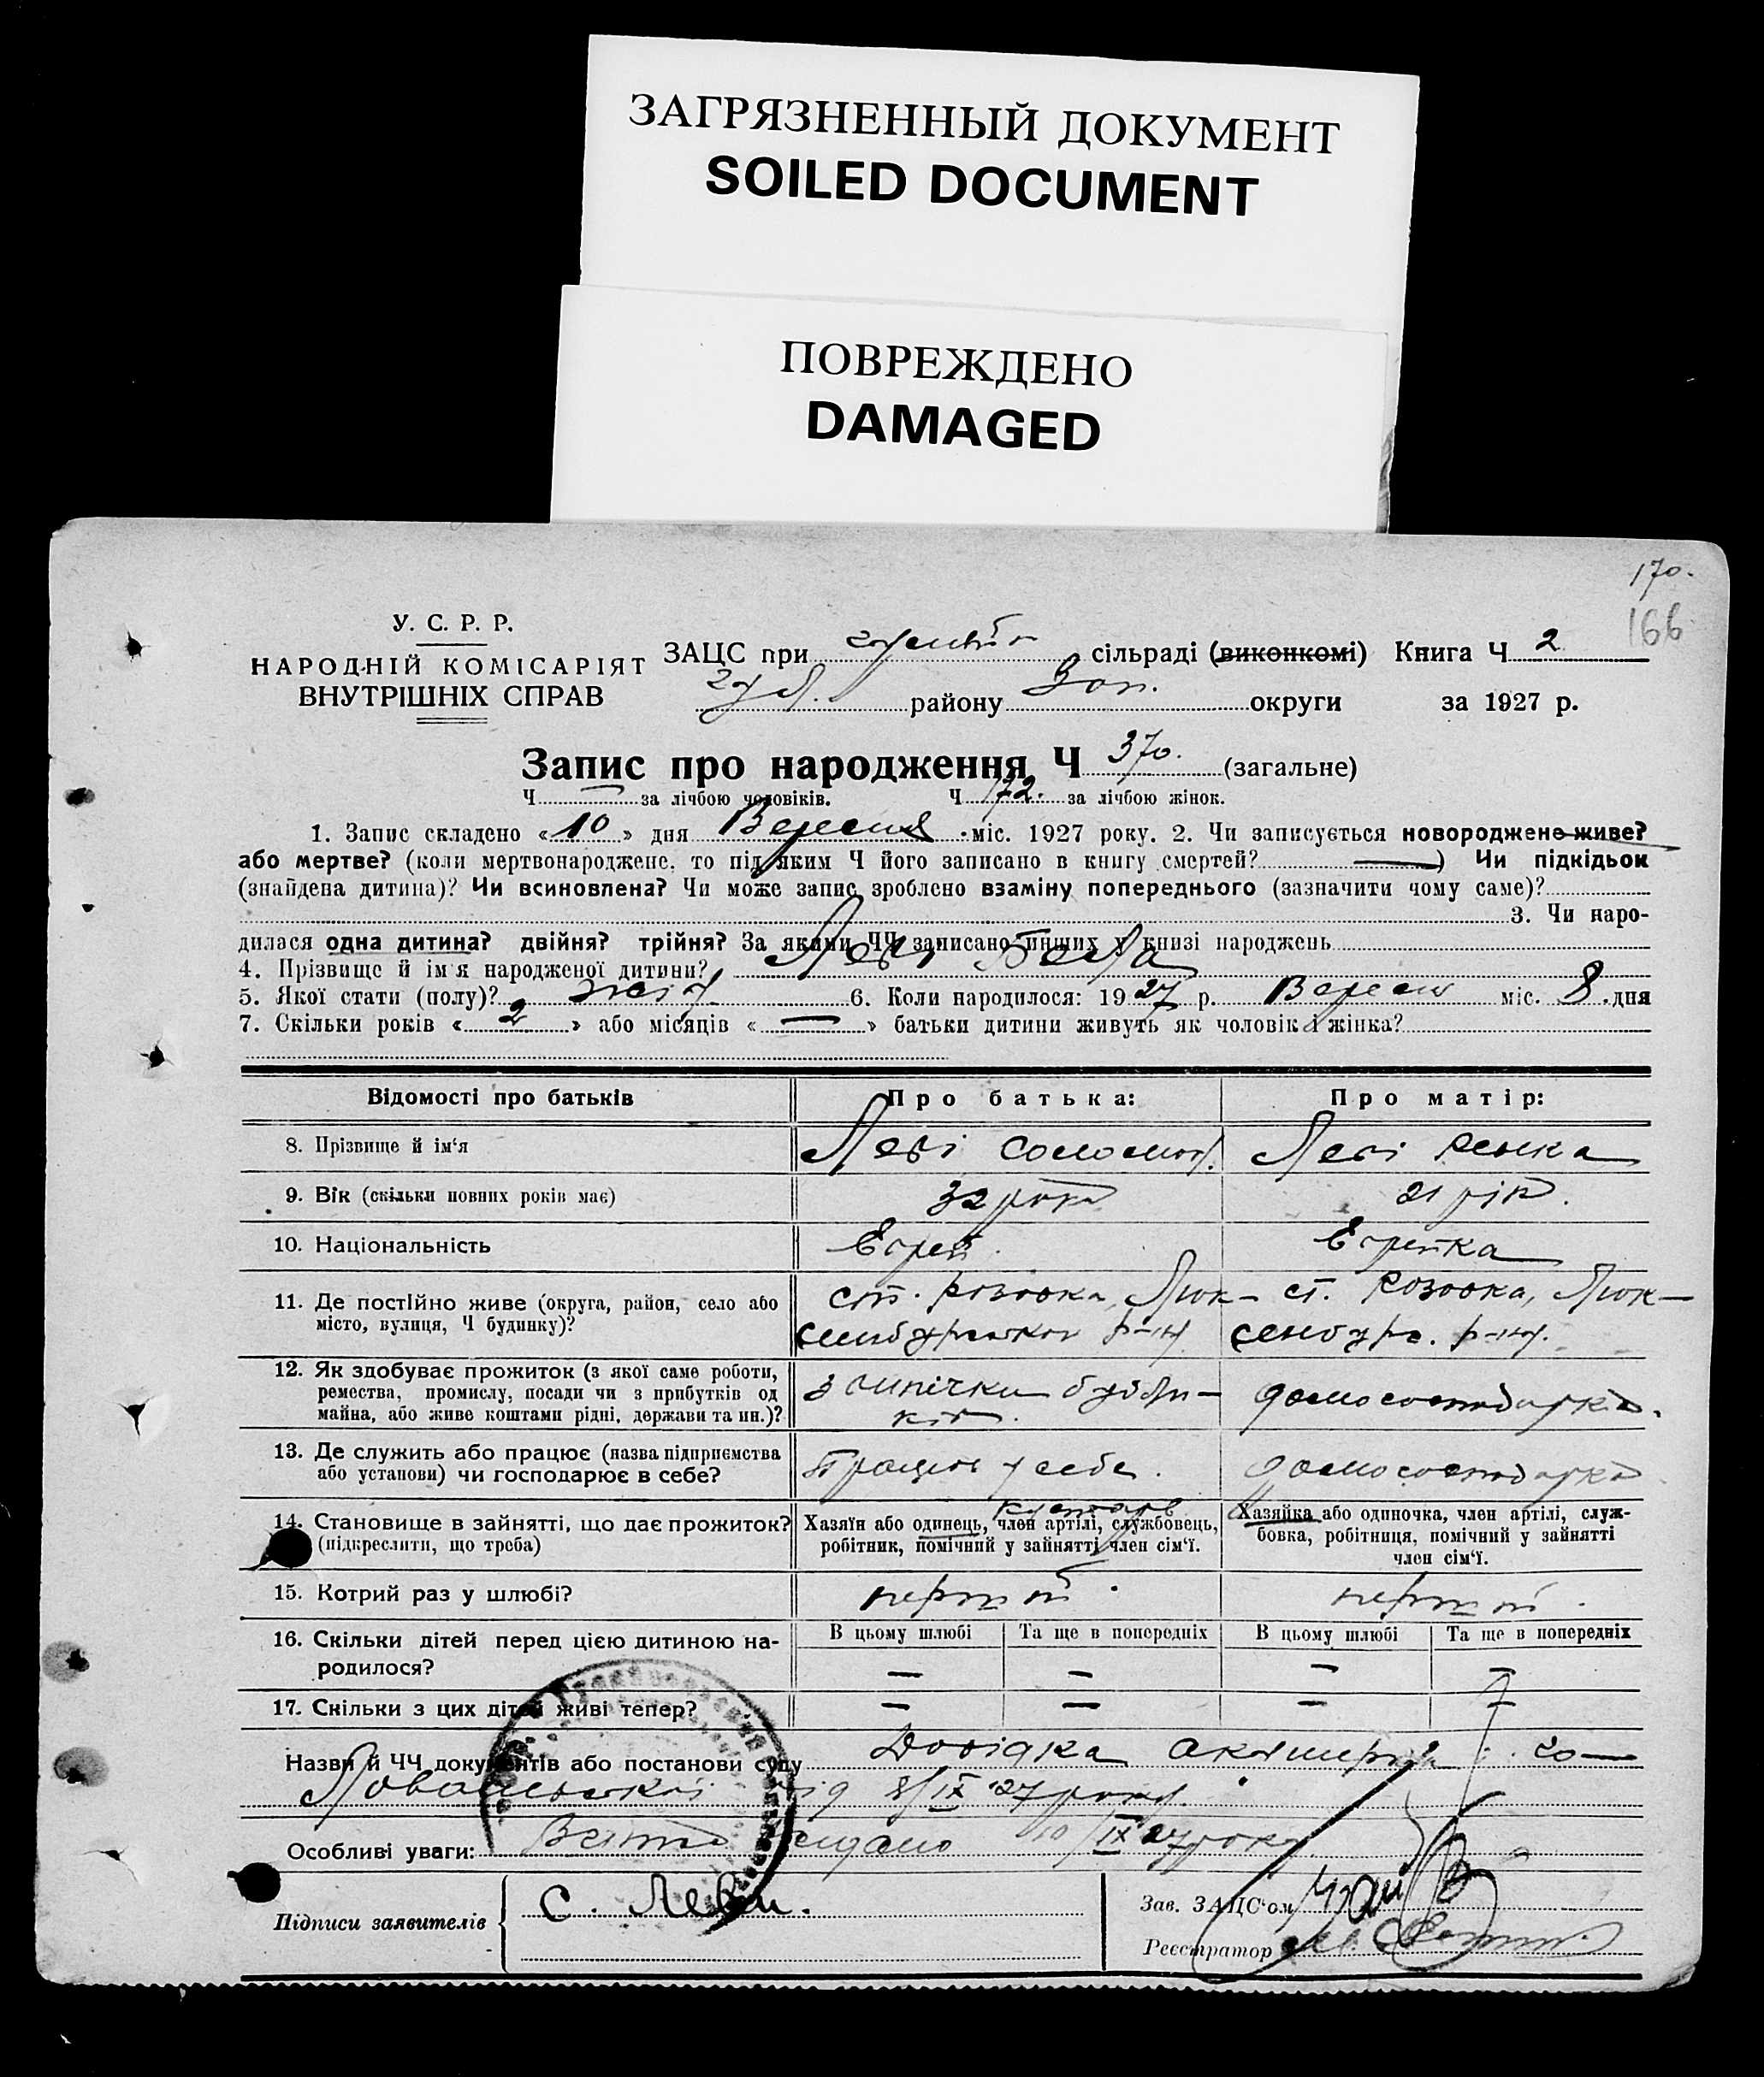 ЗАГРЯЗНЕННЫЙ ДОКУМЕНТ
SOILED DOCUMENT
ПОВРЕЖДЕНО
DAMAGED
170.
166
У. С. Р. Р.
НАРОДНІЙ КОМІСАРІЯТ
ВНУТРІШНІХ СПРАВ
ЗАЦС при сільраді (виконкомі) Книга Ч 2
району Зап. округи за 1927 р.
Запис про народження Ч 370. (загальне)
Ч — за лічбою чоловіків. Ч 172. за лічбою жінок.
1. Запис складено «10» дня Вересня міс. 1927 року. 2. Чи записується новороджене живе?
або мертве? (коли мертвонароджене, то під яким Ч його записано в книгу смертей? —) Чи підкідьок
(знайдена дитина)? Чи всиновлена? Чи може запис зроблено взаміну попереднього (зазначити чому саме)?
3. Чи наро-
дилася одна дитина? двійня? трійня? За якими ЧЧ записано инших у книзі народжень
4. Прізвище й ім'я народженої дитини? Леві Бела
5. Якої стати (полу)? жін. 6. Коли народилося: 1927 р. Вересня міс. 8 дня
7. Скільки років «2» або місяців «—» батьки дитини живуть як чоловік і жінка?
Відомості про батьків Про батька: Про матір:
8. Прізвище й ім'я Леві Соломон. Леві Женка
9. Вік (скільки повних років має) 32 роки 21 рік.
10. Національність Єврей. Єврейка
11. Де постійно живе (округа, район, село або ст. Розовка, Люк- ст. Розовка, Люк-
місто, вулиця, Ч будинку)? сембургськой р-ну сенбург. р-ну.
12. Як здобуває прожиток (з якої саме роботи,
ремества, промислу, посади чи з прибутків од з випічки бубли- домогосподарка.
майна, або живе коштами рідні, держави та ин.)? ків.
13. Де служить або працює (назва підприємства Працює у себе. домогосподарка
або установи) чи господарює в себе?
кустарь
14. Становище в зайнятті, що дає прожиток? Хазяїн або одинець, член артілі, службовець, Хазяйка або одиночка, член артілі, служ-
(підкреслити, що треба) робітник, помічний у зайнятті член сім'ї. бовка, робітниця, помічний у зайнятті
член сім'ї.
15. Котрий раз у шлюбі? перший. перший.
16. Скільки дітей перед цією дитиною на- В цьому шлюбі Та ще в попередніх В цьому шлюбі Та ще в попередніх
родилося? — — — —
17. Скільки з цих дітей живі тепер? — — — —
Назви й ЧЧ документів або постанови суду Довідка акушерки
від 8/IX 27 року.
Особливі уваги: видано 10/IX 27 року
Підписи заявителів С. Леви. Зав. ЗАЦС'ом
Реєстратор